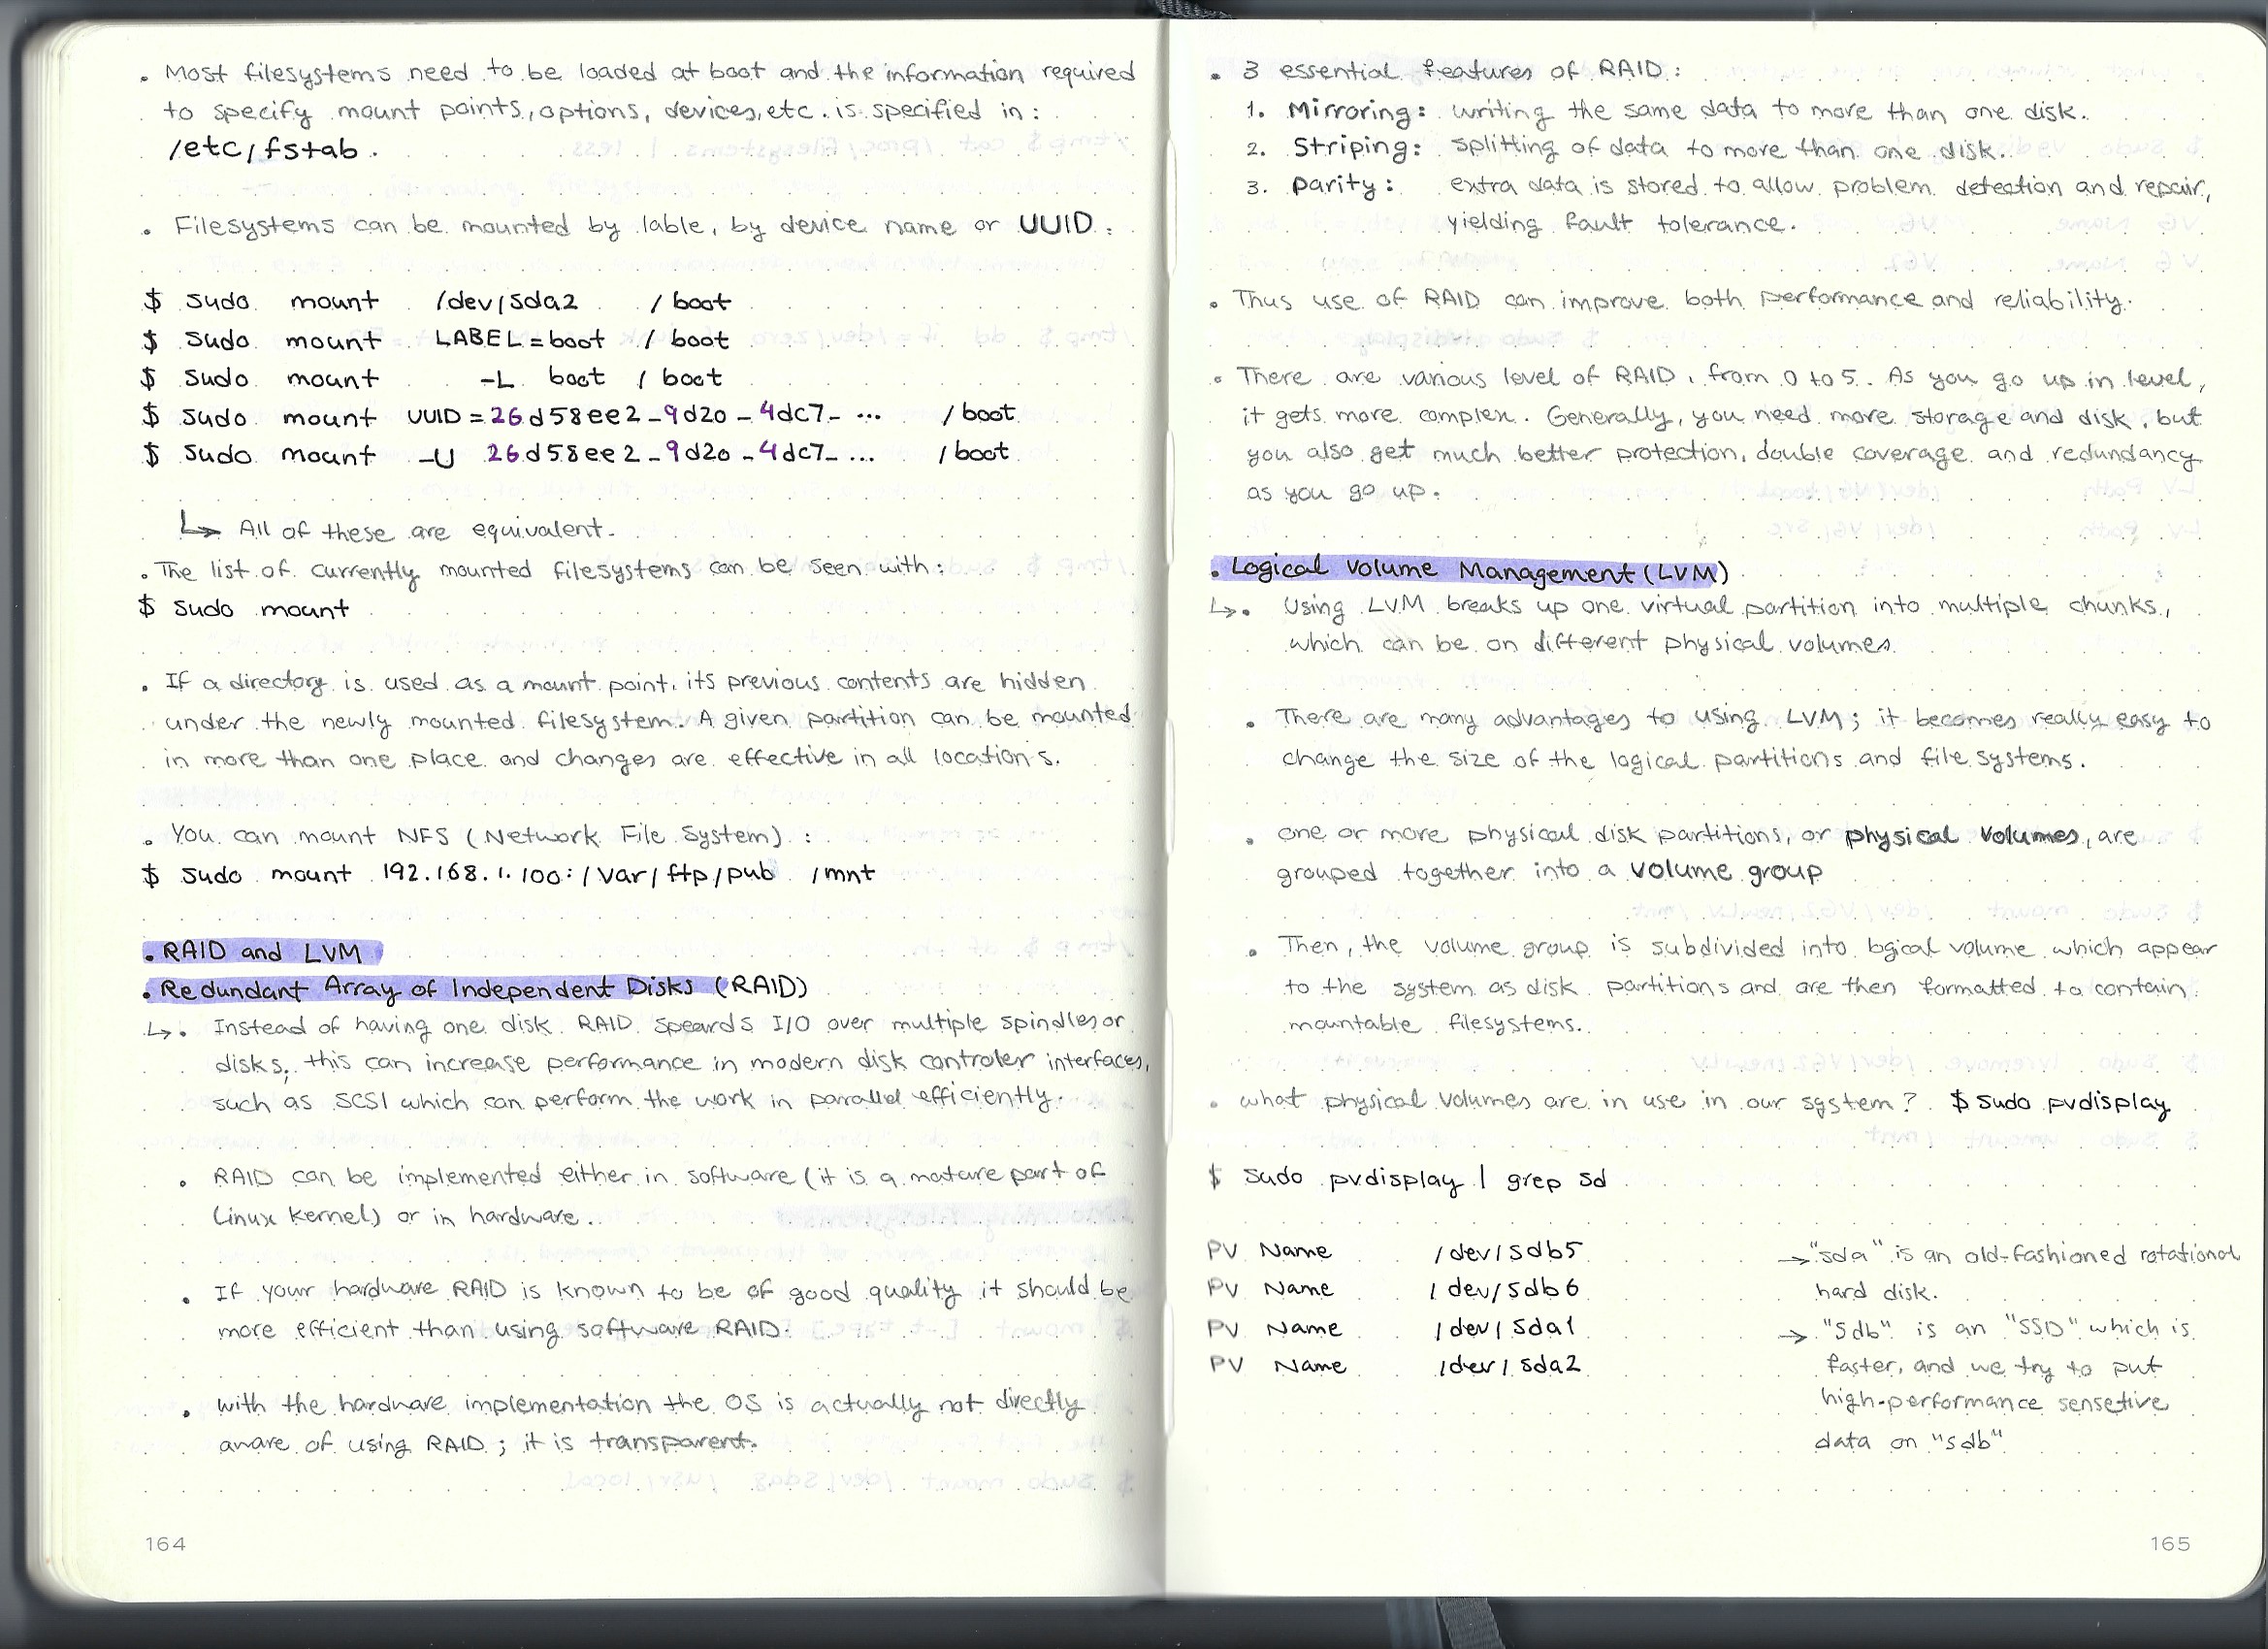 . Most filesystems need to be loaded at boot and the information required
to specify mount points, options, devices, etc. is specified in:
/etc/fstab.
. Filesystems can be mounted by lable, by device name or UUID.
$ sudo mount /dev/sda2 /boot
$ sudo mount LABEL=boot /boot
$ sudo mount -L boot /boot
$ sudo mount UUID=26d58ee2-9d20-4dc7-... /boot
$ sudo mount -U 26d58ee2-9d20-4dc7-... /boot
↳ All of these are equivalent.
. The list of currently mounted filesystems can be seen with:
$ sudo mount
. If a directory is used as a mount point, its previous contents are hidden
under the newly mounted filesystem. A given partition can be mounted
in more than one place and changes are effective in all locations.
. You can mount NFS (Network File System):
$ sudo mount 192.168.1.100:/var/ftp/pub /mnt
. RAID and LVM
. Redundant Array of Independent Disks (RAID)
↳. Instead of having one disk RAID speards I/O over multiple spindles or
disks; this can increase performance in modern disk controler interfaces,
such as SCSI which can perform the work in parallel efficiently.
. RAID can be implemented either in software (it is a mature part of
Linux kernel) or in hardware.
. If your hardware RAID is known to be of good quality it should be
more efficient than using software RAID.
. with the hardware implementation the OS is actually not directly
aware of using RAID; it is transparent.
164
. 3 essential features of RAID:
1. Mirroring: writing the same data to more than one disk.
2. Striping: splitting of data to more than one disk.
3. Parity: extra data is stored to allow problem detection and repair,
yielding fault tolerance.
. Thus use of RAID can improve both performance and reliability.
. There are various level of RAID, from 0 to 5. As you go up in level,
it gets more complex. Generally, you need more storage and disk, but
you also get much better protection, double coverage and redundancy
as you go up.
. Logical Volume Management (LVM)
↳. Using LVM breaks up one virtual partition into multiple chunks,
which can be on different physical volumes.
. There are many advantages to using LVM; it becomes really easy to
change the size of the logical partitions and file systems.
. one or more physical disk partitions, or physical volumes, are
grouped together into a volume group
. Then, the volume group is subdivided into logical volume which appear
to the system as disk partitions and are then formatted to contain
mountable filesystems.
. what physical volumes are in use in our system? $ sudo pvdisplay
$ sudo pvdisplay | grep sd
PV Name /dev/sdb5 → "sda" is an old-fashioned rotational
PV Name /dev/sdb6 hard disk.
PV Name /dev/sda1 → "sdb" is an "SSD" which is
PV Name /dev/sda2 faster, and we try to put
high-performance sensetive
data on "sdb"
165